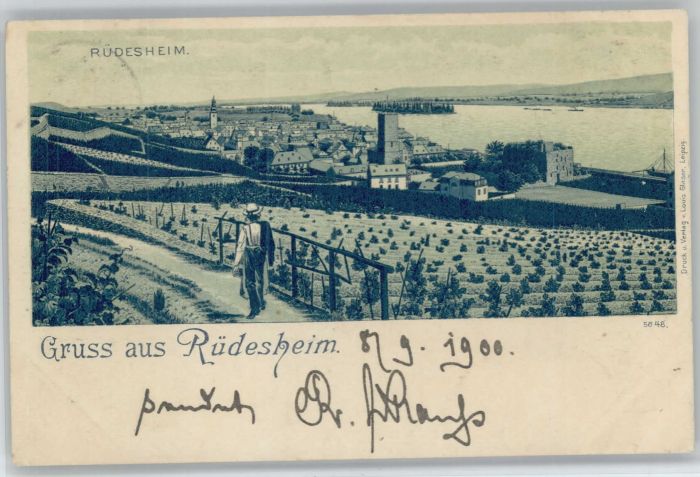 RÜDESHEIM.
Druck u. Verlag v. Louis Glaser, Leipzig.
5646.
Gruss aus Rüdesheim. 8/9. 1900.
sendet